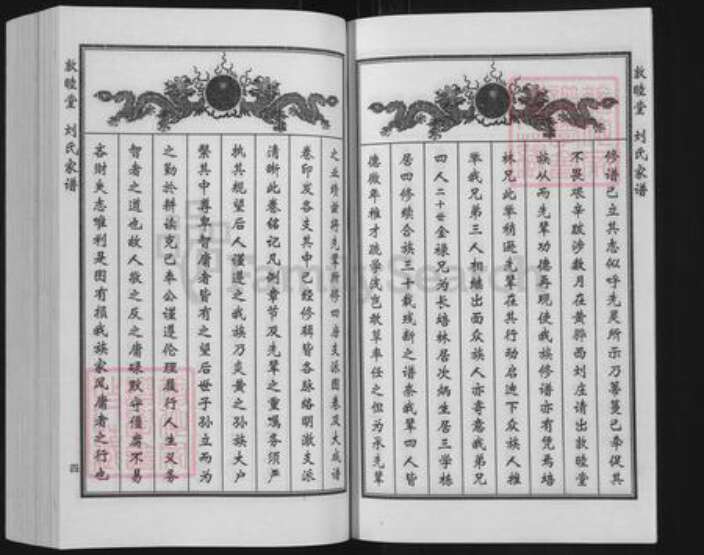 敦睦堂 刘氏家谱
修谱已立其志似呼先灵所示乃蓦蔓已牵促其
不畏艰辛跋涉数月在黄骅西刘庄请出敦睦堂
族从而先辈功德再现使我族修谱亦有凭焉培
林兄此举稍逊先辈在其行动启迪下众族人推
举我兄弟三人相继出面众族人亦寄意我弟兄
四人二十世金禄兄为长培林居次炳生居三学栋
居四修续合族三十载残断之谱奈我辈四人皆
德微年稚才疏学浅岂敢草率任之但为承先辈
之业绩兹将先辈所修四房支派图卷及大成谱
卷印发各支其中几经修辑皆各脉络明澈支派
清晰此卷铭记凡例章节及先辈之重嘱务须严
执其规望后人谨遵之我族乃炎黄之孙族大户
繁其中尊卑智庸者皆有之望后世子孙立而为
之勤於耕读克己奉公谨遵伦理履行人生义务
智者之道也故人敬之反之庸碌默守僵腐不易
吝财失志唯利是图有损我族家风庸者之行也
敦睦堂 刘氏家谱
四
FamilySearch